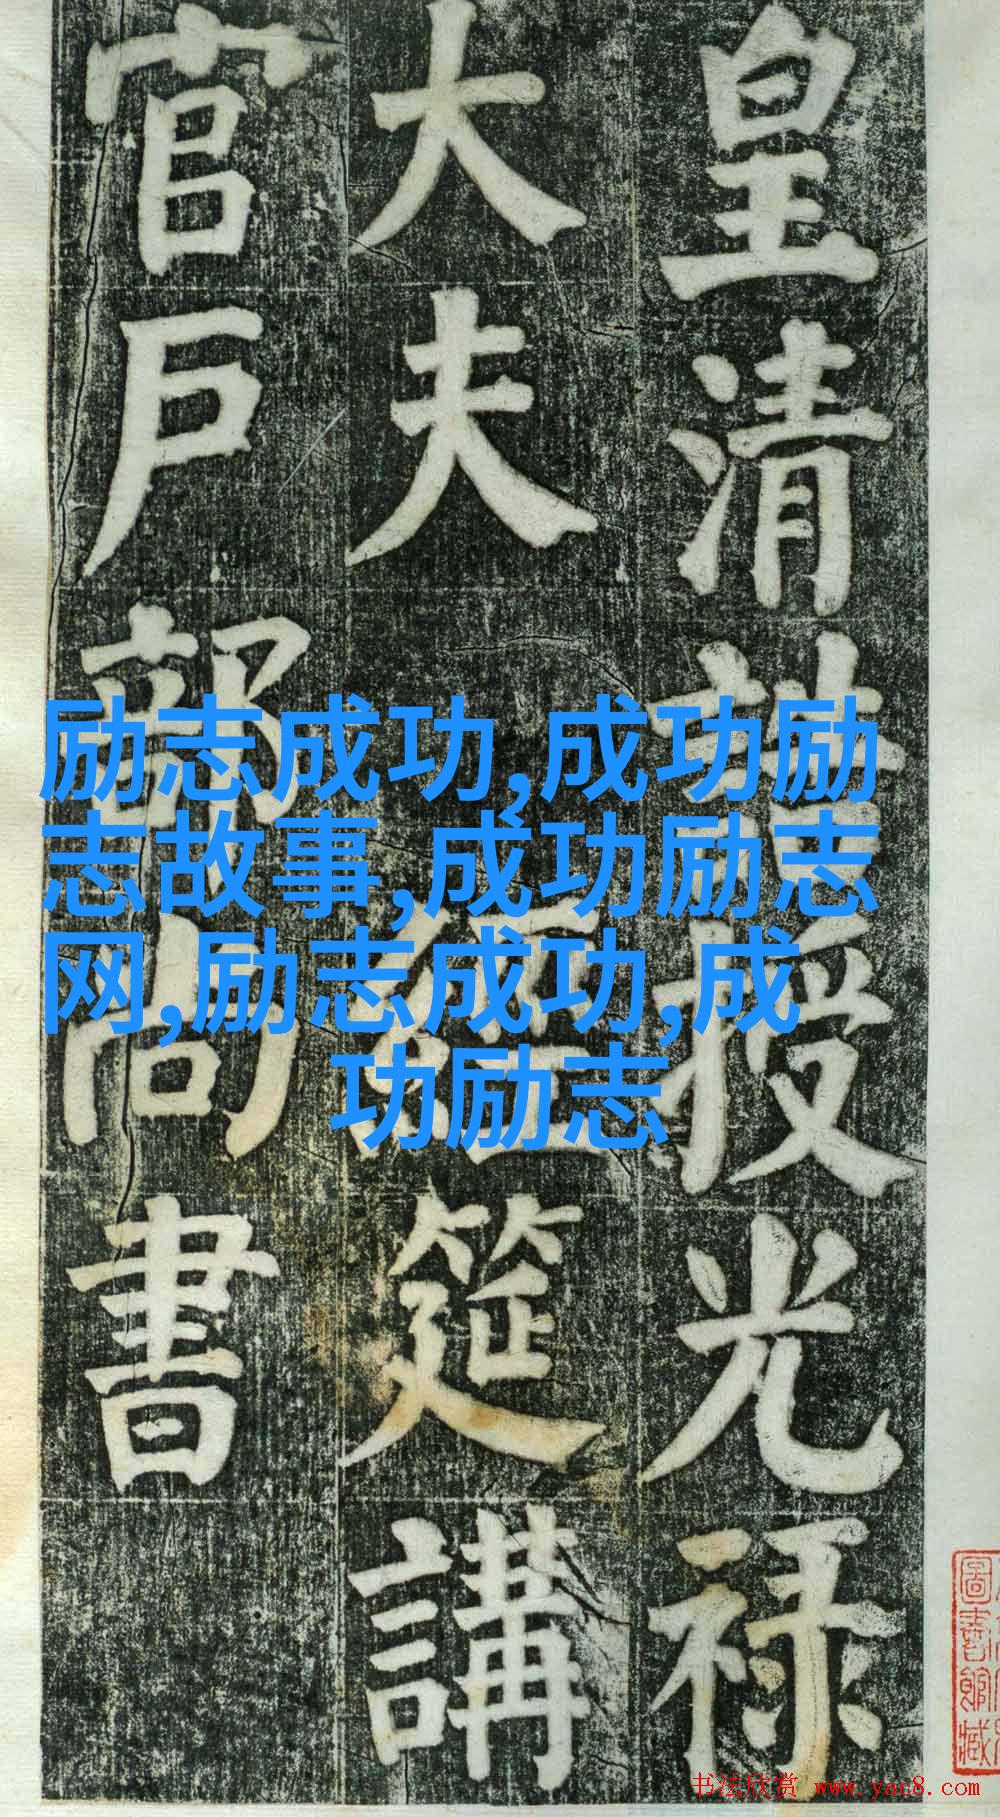 皇清誥授光禄
大夫 經筵講
官戸部尚書
励志成功,成功励
志故事,成功励志
网,励志成功,成
功励志
圖書館藏
书法欣赏 www.yac8.com